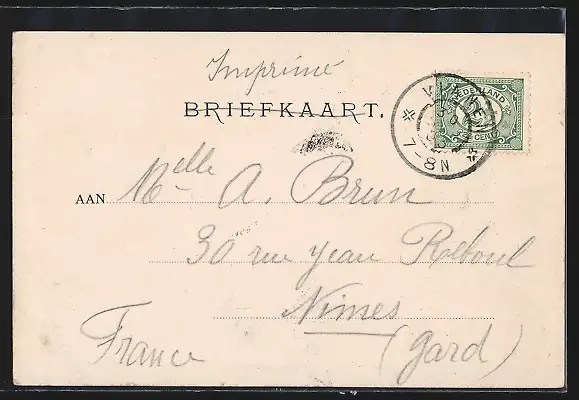 Imprimé
BRIEFKAART.
NEDERLAND
7-8N
AAN Melle A. Brun
30 rue Jean Reboul
Nimes
France (Gard)